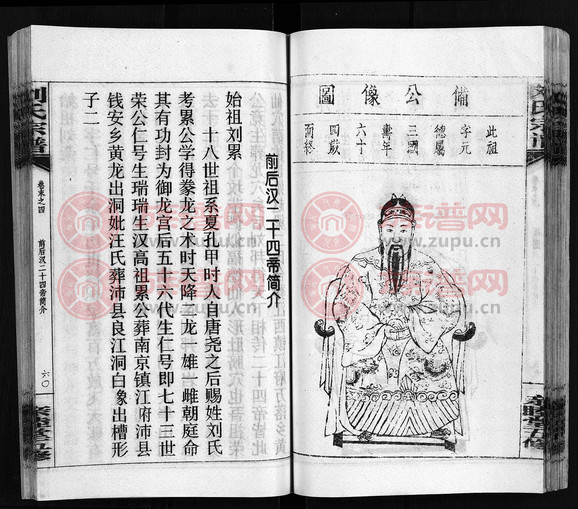 備公像圖
此祖
字元
德屬
三國
壽年
六十
四歲
而終
刘氏宗譜
前后汉二十四帝简介
始祖刘累
十八世祖系夏孔甲时人自唐尧之后赐姓刘氏
考累公学得豢龙之术时天降二龙一雄一雌朝庭命
其有功封为御龙宫后五十六代生仁号即七十三世
荣公仁号生瑞瑞生汉高祖累公葬南京镇江府沛县
钱安乡黄龙出洞妣汪氏葬沛县良江洞白象出槽形
子二
刘氏宗譜
卷末之四
前后汉二十四帝简介
六〇
族谱网
www.zupu.cn
族谱网
www.zupu.cn
族谱网
www.zupu.cn
族谱网
www.zupu.cn